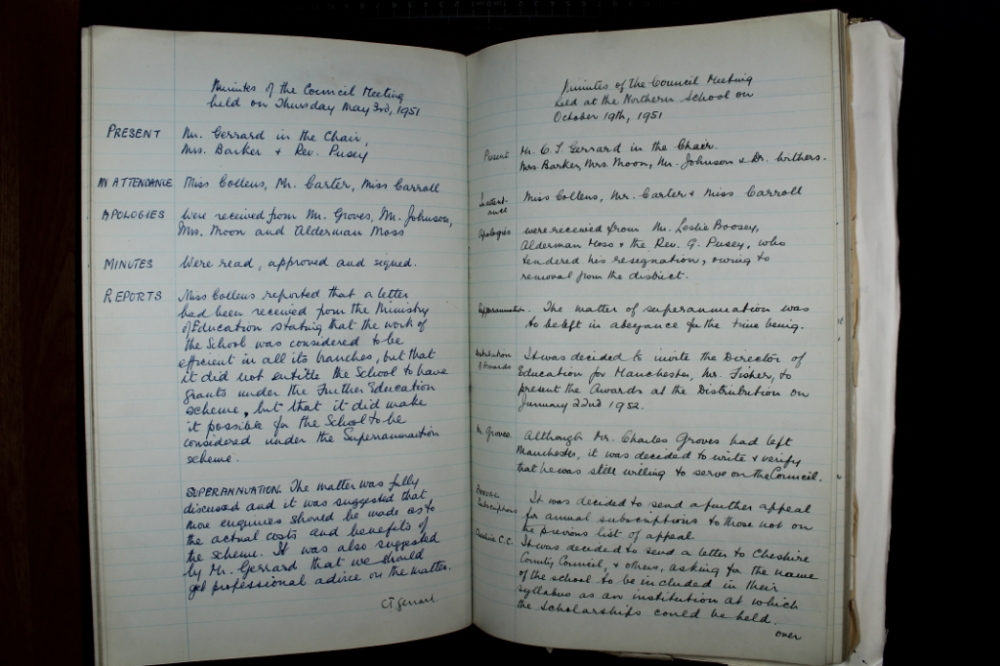 Minutes of the Council Meeting
held on Thursday May 3rd, 1951
PRESENT Mr. Gerrard in the Chair,
Mrs. Barker & Rev. Pusey
IN ATTENDANCE Miss Collens, Mr. Carter, Miss Carroll
APOLOGIES Were received from Mr. Groves, Mr. Johnson,
Mrs. Moon and Alderman Moss
MINUTES Were read, approved and signed.
REPORTS Miss Collens reported that a letter
had been received from the Ministry
of Education stating that the work of
the School was considered to be
efficient in all its branches, but that
it did not entitle the School to have
grants under the Further Education
scheme, but that it did make
it possible for the School to be
considered under the Superannuation
scheme.
SUPERANNUATION. The matter was fully
discussed and it was suggested that
more enquiries should be made as to
the actual costs and benefits of
the scheme. It was also suggested
by Mr. Gerrard that we should
get professional advice on the matter.
CT Gerrard
Minutes of the Council Meeting
held at the Northern School on
October 19th, 1951
Present Mr. C. T. Gerrard in the Chair.
Mrs Barker, Mrs Moon, Mr. Johnson & Dr. Withers.
In attend-
ance Miss Collens, Mr. Carter & Miss Carroll
Apologies were received from Mr. Leslie Boosey,
Alderman Moss & the Rev. G. Pusey, who
tendered his resignation, owing to
removal from the district.
Superannuation. The matter of superannuation was
to be left in abeyance for the time being.
Distribution It was decided to invite the Director of
of Awards Education for Manchester, Mr. Fisher, to
present the Awards at the Distribution on
January 22nd 1952.
Mr. Groves. Although Mr. Charles Groves had left
Manchester, it was decided to write & verify
that he was still willing to serve on the Council.
Annual It was decided to send a further appeal
Subscriptions for annual subscriptions to those not on
the previous list of appeal
Cheshire C.C. It was decided to send a letter to Cheshire
County Council, & others, asking for the name
of the school to be included in their
syllabus as an institution at which
the scholarships could be held.
over